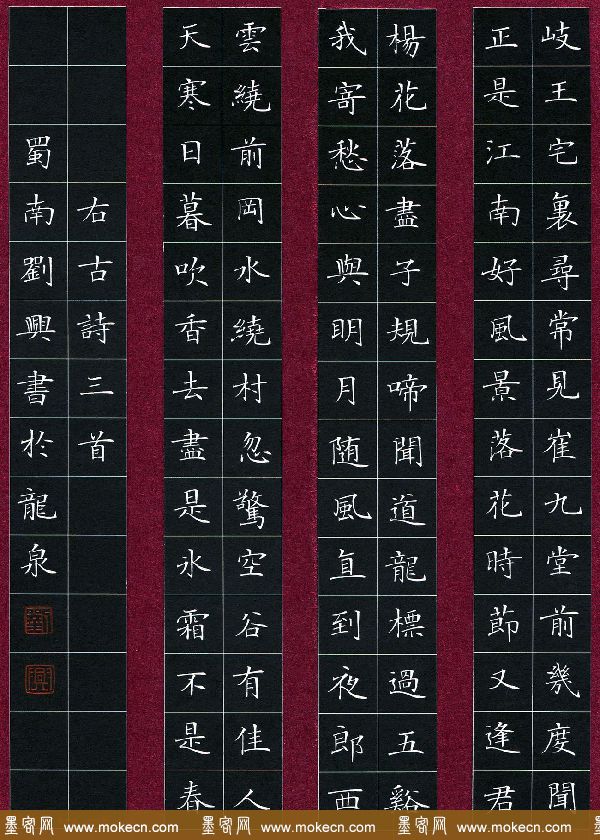 岐王宅裏尋常見崔九堂前幾度聞
正是江南好風景落花時節又逢君
楊花落盡子規啼聞道龍標過五谿
我寄愁心與眀月随風直到夜郎西
雲繞前岡水繞村忽驚空谷有佳人
天寒日暮吹香去盡是氷霜不是春
右古詩三首
蜀南劉興書於龍泉
劉
興
墨客网 www.mokecn.com 墨客网 www.mokecn.com 墨客网 www.mokecn.com